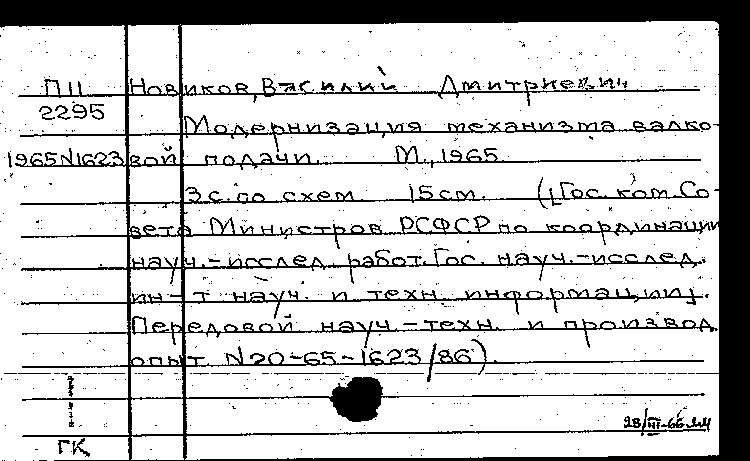 П II Новиков, Василий Дмитриевич
2295 Модернизация механизма валко-
1965 N1623 вой подачи. М., 1965
3 с. со схем. 15 см. ([Гос. ком. Со-
вета Министров РСФСР по координации
науч.-исслед. работ. Гос. науч.-исслед.
ин-т науч. и техн. информации].
Передовой науч.-техн. и производ.
опыт N20-65-1623/86).
28/III-66
ГК